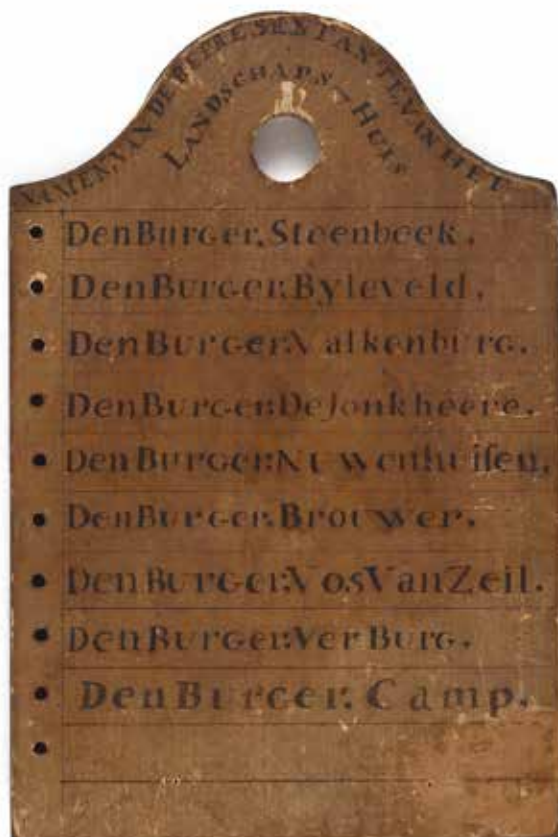 NAMEN.VAN.DE REPRESENTANTE.VAN HET
LANDSCHAPS-HUIS
Den Burger.Steenbeek.
Den Burger.Byleveld.
Den Burger.Valkenburg.
Den Burger.De Jonkheere.
Den Burger.Nuwenhuisen.
Den Burger.Brouwer.
Den Burger.Vos Van Zeil.
Den Burger.Ver Burg.
Den Burger.Camp.